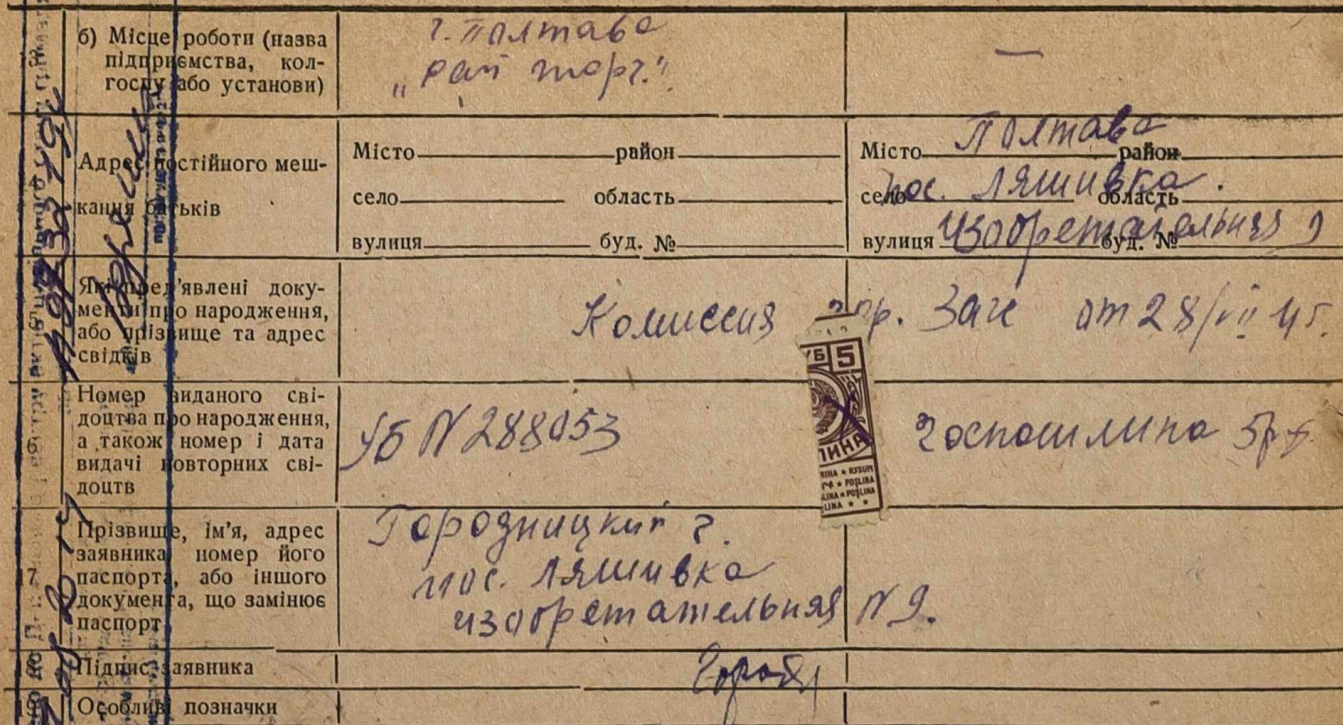 б) Місце роботи (назва
підприємства, кол-
госпу або установи)
г. Полтава
„Рай торг."
—
Адрес постійного меш-
кання батьків
Місто район
село область
вулиця буд. №
Місто Полтава район
село пос. Ляшивка. область
вулиця Изобретательная 9 буд. №
Які пред'явлені доку-
менти про народження,
або прізвище та адрес
свідків
Комиссия гор. Загс от 28/VII 45г.
Номер виданого сві-
доцтва про народження,
а також номер і дата
видачі повторних сві-
доцтв
УБ N 288053
УБ 5
ЛИНА
госпошлина 5р
17
Прізвище, ім'я, адрес
заявника, номер його
паспорта, або іншого
документа, що замінює
паспорт
Городницкий г.
пос. Ляшивка
изобретательная N 9.
Підпис заявника
Особливі позначки